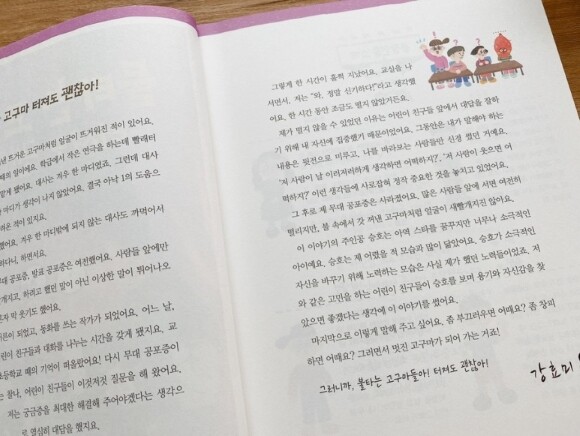 고구마 터져도 괜찮아!
뜨거운 고구마처럼 얼굴이 뜨거워진 적이 있어요.
때의 일이에요. 학급에서 작은 연극을 하는데 빨래터
맡게 됐어요. 대사는 겨우 한 마디였죠. 그런데 대사
마디가 생각이 나지 않았어요. 결국 아낙 1의 도움으
적이 있지요.
했어요. 겨우 한 마디밖에 되지 않는 대사도 까먹어서
하다니, 하면서요.
무대 공포증, 발표 공포증은 여전했어요. 사람들 앞에만
개지고, 하려고 했던 말이 아닌 이상한 말이 튀어나오
막 웃기도 했어요.
되었고, 동화를 쓰는 작가가 되었어요. 어느 날,
어린이 친구들과 대화를 나누는 시간을 갖게 됐지요. 교
초등학교 때의 기억이 떠올랐어요! 다시 무대 공포증이
찰나, 어린이 친구들이 이것저것 질문을 해 왔어요.
저는 궁금증을 최대한 해결해 주어야겠다는 생각으
로 열심히 대답을 했지요.
그렇게 한 시간이 훌쩍 지났어요. 교실을 나
서면서, 저는 “와, 정말 신기하다!”라고 생각했
어요. 한 시간 동안 조금도 떨지 않았거든요.
제가 떨지 않을 수 있었던 이유는 어린이 친구들 앞에서 대답을 잘하
기 위해 내 자신에 집중했기 때문이었어요. 그동안은 내가 말해야 하는
내용은 뒷전으로 미루고, 나를 바라보는 사람들만 신경 썼던 거예요.
‘저 사람이 날 이러저러하게 생각하면 어떡하지?’, ‘저 사람이 웃으면 어
떡하지?’ 이런 생각들에 사로잡혀 정작 중요한 것을 놓치고 있었어요.
그 후로 제 무대 공포증은 사라졌어요. 많은 사람들 앞에 서면 여전히
떨리지만, 불 속에서 갓 꺼낸 고구마처럼 얼굴이 새빨개지진 않아요.
이 이야기의 주인공 승호는 아역 스타를 꿈꾸지만 너무나 소극적인
아이예요. 승호는 제 어렸을 적 모습과 많이 닮았어요. 승호가 소극적인
자신을 바꾸기 위해 노력하는 모습은 사실 제가 했던 노력들이었죠. 저
와 같은 고민을 하는 어린이 친구들이 승호를 보며 용기와 자신감을 찾
았으면 좋겠다는 생각에 이 이야기를 썼어요.
마지막으로 이렇게 말해 주고 싶어요. 좀 부끄러우면 어때요? 좀 창피
하면 어때요? 그러면서 멋진 고구마가 되어 가는 거죠!
그러니까, 불타는 고구마들아! 터져도 괜찮아!
강효미